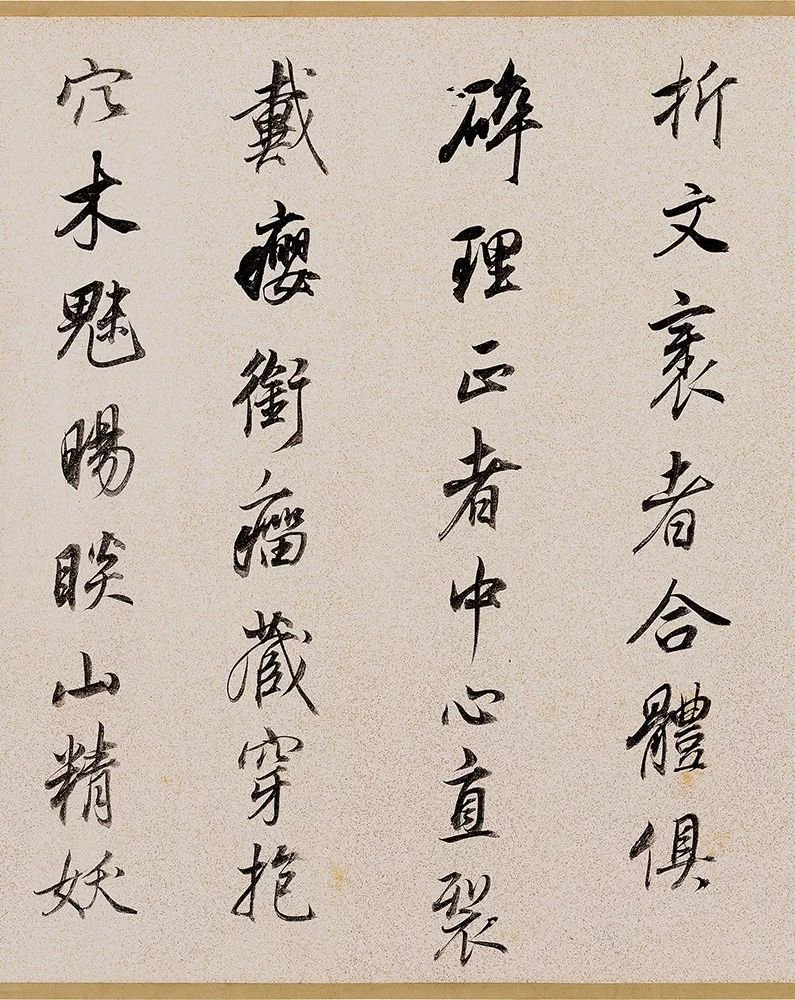 折文裹者合體俱
碎理正者中心直裂
戴癭銜瘤藏穿抱
穴木魅暘睒山精妖